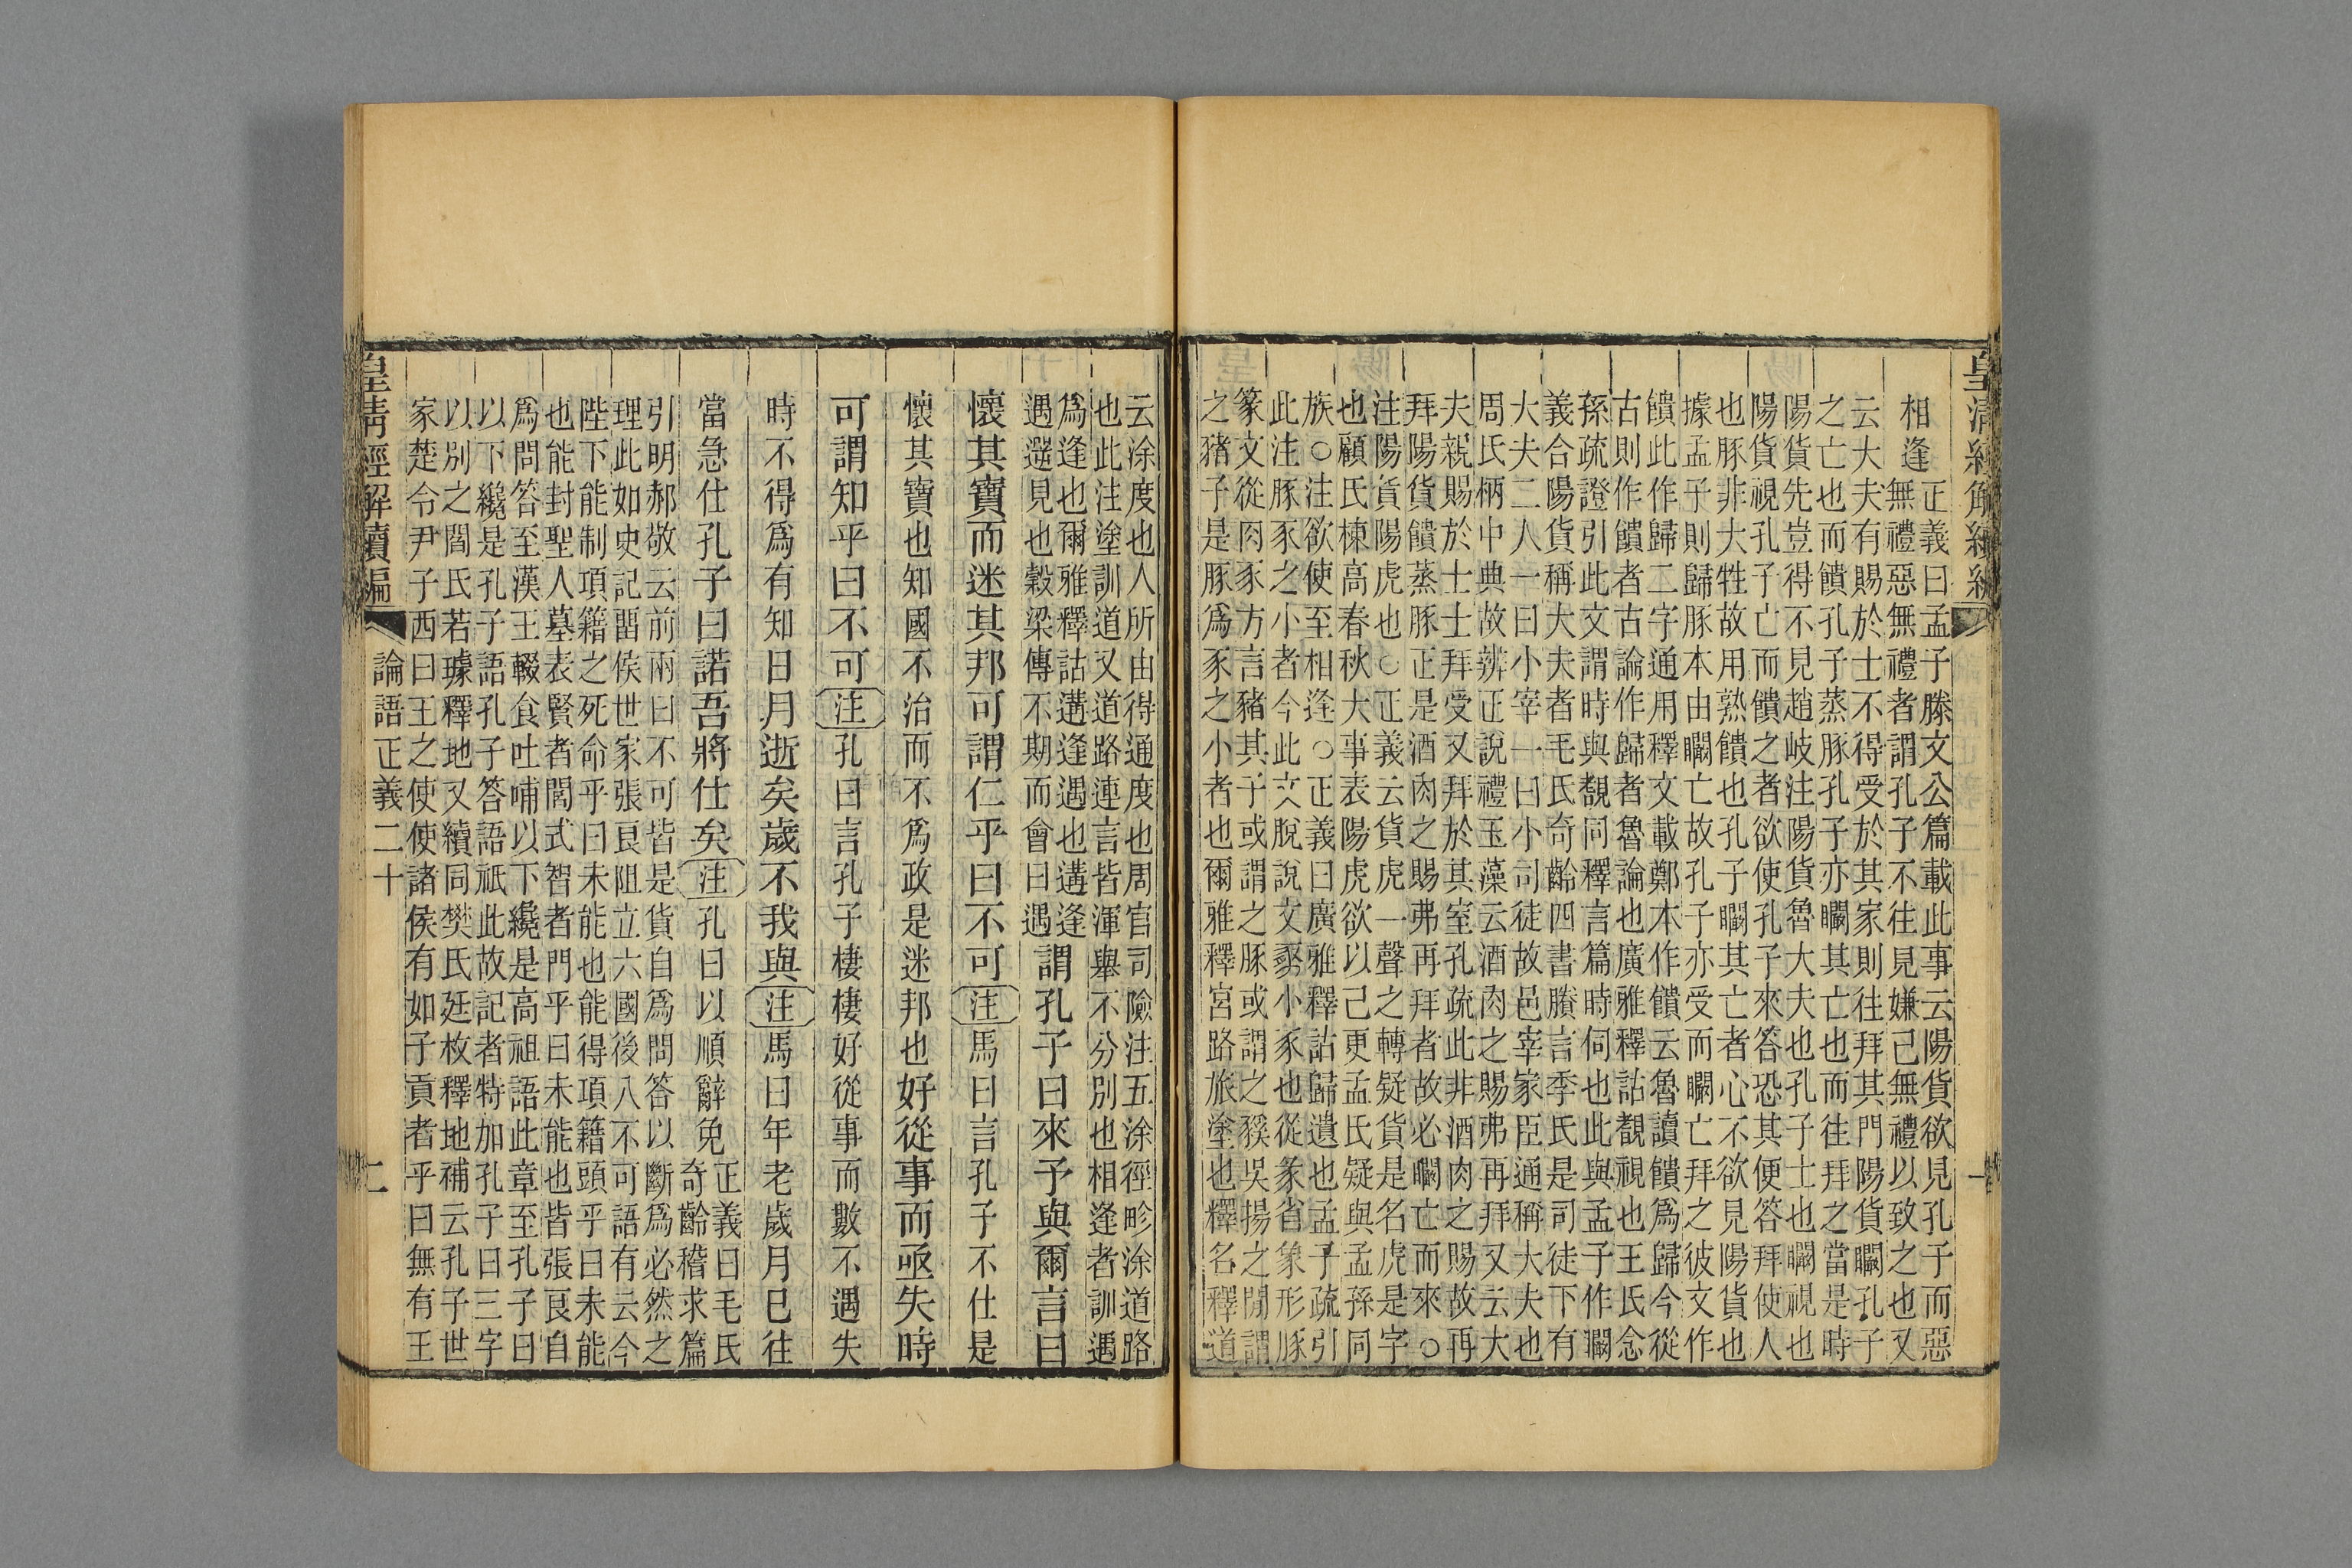 皇清經解續編
一
相逢
正義曰孟子滕文公篇載此事云陽貨欲見孔子而惡
無禮惡無禮者謂孔子不往見嫌己無禮以致之也又
云大夫有賜於士不得受於其家則往拜其門陽貨矙孔子
之亡也而饋孔子蒸豚孔子亦矙其亡也而往拜之當是時
陽貨先豈得不見趙岐注陽貨魯大夫也孔子士也矙視也
陽貨視孔子亡而饋之者欲使孔子來答恐其便答拜使人
也豚非大牲故用熟饋也孔子矙其亡者心不欲見陽貨也
據孟子則歸豚本由矙亡故孔子亦受而矙亡拜之彼文作
饋此作歸二字通用釋文載鄭本作饋云魯讀饋爲歸今從
古則作饋者古論作歸者魯論也廣雅釋詁覩視也王氏念
孫疏證引此文謂時與覩同釋言篇時伺也此與孟子作矙
義合陽貨稱大夫者毛氏奇齡四書賸言季氏是司徒下有
大夫二人一曰小宰一曰小司徒故邑宰家臣通稱大夫也
周氏柄中典故辨正說禮玉藻云酒肉之賜弗再拜又云大
夫親賜於士士拜受又拜於其室孔疏此非酒肉之賜故再
拜陽貨饋蒸豚正是酒肉之賜弗再拜者故必矙亡而來○
注陽貨陽虎也○正義云貨虎一聲之轉疑貨是名虎是字
也顧氏棟高春秋大事表陽虎欲以己更孟氏疑與孟孫同
族○注欲使至相逢○正義曰廣雅釋詁歸遺也孟子疏引
此注豚豕之小者今此文脫說文小豕也從彖省象形豚
篆文從肉豕方言豬其子或謂之豚或謂之豯吳揚之閒謂
之豬子是豚爲豕之小者也爾雅釋宮路旅塗也釋名釋道
云涂度也人所由得通度也周官司險注五涂徑畛涂道路
也此注塗訓道又道路連言皆渾舉不分別也相逢者訓遇
爲逢也爾雅釋詁遘逢遇也遘逢
遇遻見也穀梁傳不期而會曰遇
謂孔子曰來予與爾言曰
懷其寶而迷其邦可謂仁乎曰不可注馬曰言孔子不仕是
懷其寶也知國不治而不爲政是迷邦也好從事而亟失時
可謂知乎曰不可注孔曰言孔子棲棲好從事而數不遇失
時不得爲有知日月逝矣歲不我與注馬曰年老歲月已往
當急仕孔子曰諾吾將仕矣注孔曰以順辭免
正義曰毛氏
奇齡稽求篇
引明郝敬云前兩曰不可皆是貨自爲問答以斷爲必然之
理此如史記畱侯世家張良阻立六國後八不可語有云今
陛下能制項籍之死命乎曰未能也能得項籍頭乎曰未能
也能封聖人墓表賢者閭式智者門乎曰未能也皆張良自
爲問答至漢王輟食吐哺以下纔是高祖語此章至孔子曰
以下纔是孔子語孔子答語祇此故記者特加孔子曰三字
以別之閻氏若璩釋地又續同樊氏廷枚釋地補云孔子世
家楚令尹子西曰王之使使諸侯有如子貢者乎曰無有王
皇清經解續編
論語正義二十
二